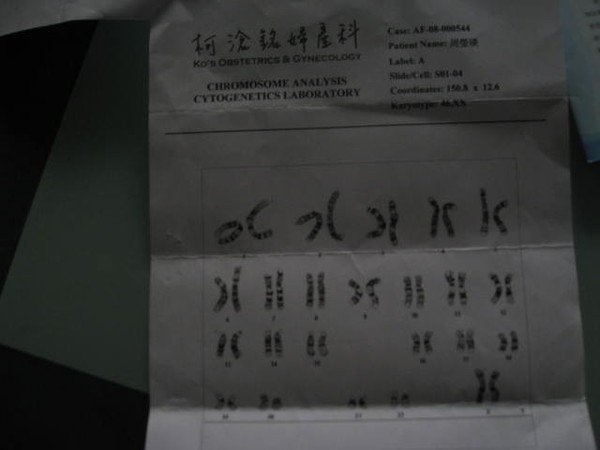 柯滄銘婦產科
KO'S OBSTETRICS & GYNECOLOGY
CHROMOSOME ANALYSIS
CYTOGENETICS LABORATORY
Case: AF-08-000544
Patient Name: 周瑩瑛
Label: A
Slide/Cell: S01-04
Coordinates: 150.8 x 12.6
Karyotype: 46,XX
6 7 8 9 10 11 12
13 14 15 16 17 18
19 20 21 22 X Y